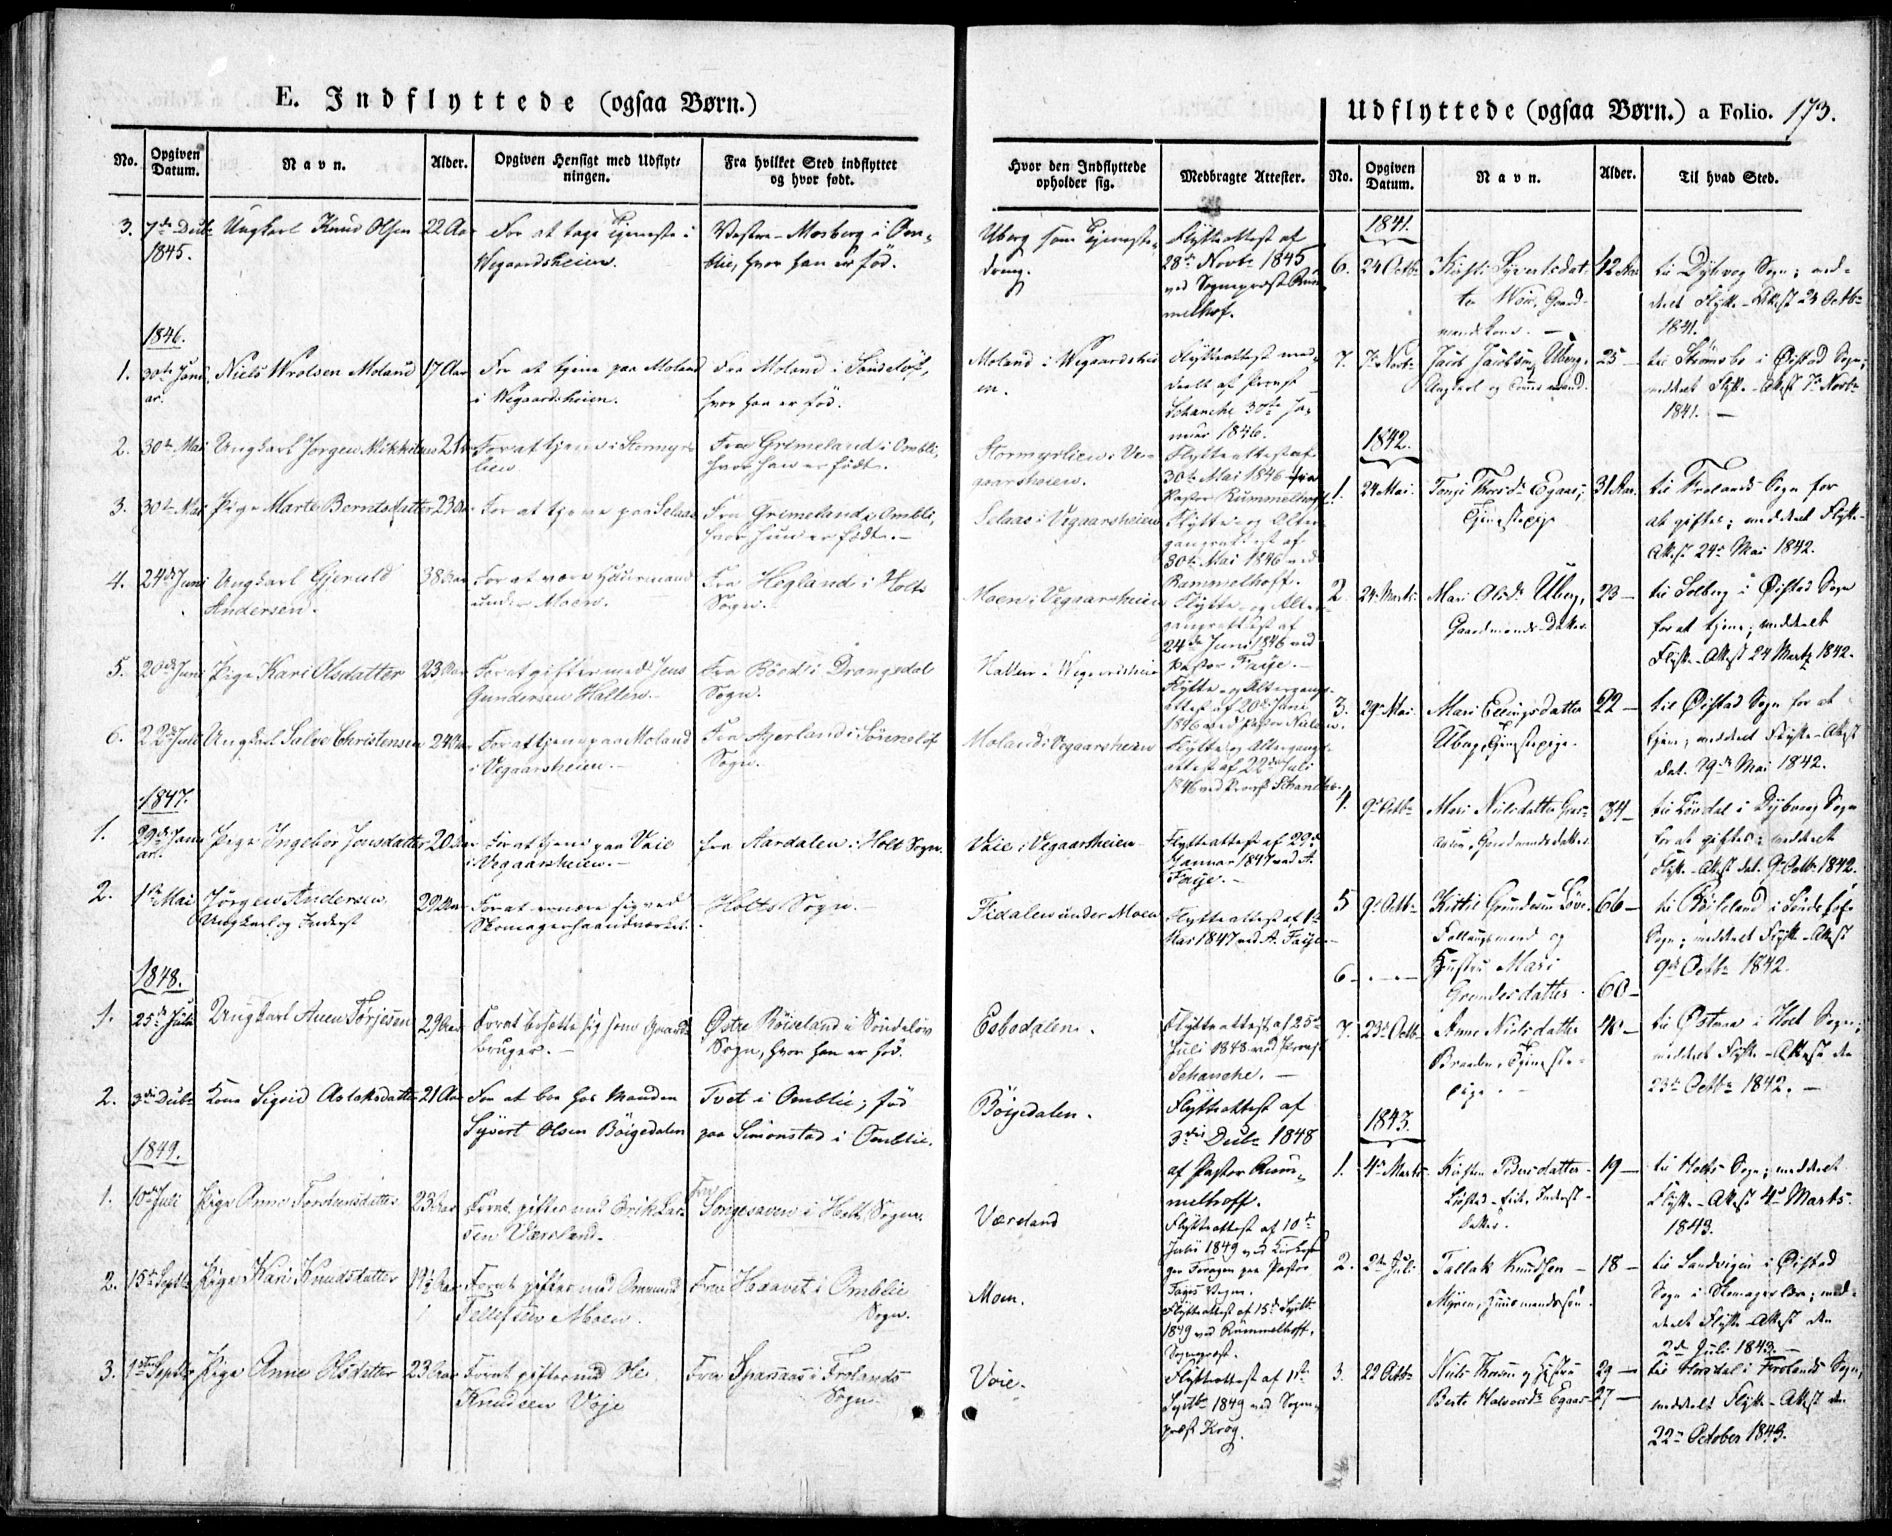 E. Indflyttede (ogsaa Børn.)
No. Opgiven Datum. Navn. Alder. Opgiven Hensigt med Udflytningen. Fra hvilket Sted indflyttet og hvor født.
3. 7de Decbr 1845. Ungkarl Knud Olsen 22 Aar For at tage Tjeneste i Wegaardsheien. Vestre-Mosberg i Omblie, hvor han er fød.
1846.
1. 30te Januar. Niels Wrolsen Moland 17 Aar For at tjene paa Moland i Wegaardsheien. Fra Moland i Søndeløv, hvor han er fød.
2. 30te Mai Ungkarl Jørgen Mikkelsen 21 For at tjene i Stormyrlien Fra Grimeland i Ombli, hvor han er født.
3. 30te Mai Pige Marte Berntsdatter 23 Aar For at tjene paa Selaas Fra Grimeland i Ombli, hvor hun er født.
4. 24de Juni Ungkarl Gjeruld Andersen. 38 Aar For at være Huusmand under Moen. Fra Hegland i Holts Sogn.
5. 20de Juni Pige Kari Olsdatter 23 Aar For at giftes med Jens Gundersen Hallen Fra Böe i Drangedal Sogn.
6. 22de Juli Ungkarl Salve Christensen 24 Aar For at tjene paa Moland i Vegaarsheien. Fra Ajerland i Sönneløf Sogn.
1847.
1. 29de Januar. Pige Ingebor Jensdatter 20 Aar For at tjene paa Vaie i Vegaarsheien. fra Aardalen i Holt Sogn.
2. 1ste Mai Jørgen Andersen Ungkarl og Inderst 29 Aar For at ernære sig ved Skomagerhaandverket. Holts Sogn.
1848.
1. 25de Juli Ungkarl Aven Torjesen 29 Aar For at bosette sig som Gaardbruger. Østre Röiseland i Söndeløv Sogn, hvor han er fød.
2. 3die Decbr Kone Sigrid Aslaksdatter 21 Aar For at boe hos Manden Syvert Olsen Böigedalen Tvet i Omblie; fød paa Simonstad i Omblie.
1849.
1. 10de Juli Pige Anne Torstensdatter 23 Aar For at giftes med Erik Larsen Værsland. Fra Songesaven i Holt Sogn.
2. 15de Septbr Pige Kari Knudsdatter For at giftes med Omund Tellefsen Moen. Fra Haxavet i Omblie Sogn.
3. 1ste Septbr Pige Anne Olsdatter 23 Aar For at giftes med Ole Knudsen Voje Fra Spanaas i Frolands Sogn.
Hvor den Indflyttede opholder sig. Medbragte Attester.
Uberg som Tjenestedreng. Flytteattest af 28de Novbr 1845 ved Sognepræst Rummelhof.
Moland i Wegaardsheien. Flytteattest meddeelt af Provst Schanche 30te Januar 1846.
Stormyrlien i Vegaarsheien. Flytteattest af 30te Mai 1846 fra Pastor Rummelhoff
Selaas i Vegaarsheien Flytte- og Altergangsattest af 30te Mai 1846 ved Rammelhoff.
Moen i Vegaarsheien Flytte- og Altergangsattest af 24de Juni 1846 ved Pastor Faye.
Hallen i Wegaarsheien Flytte- og Altergangsattest af 20de Juni 1846 ved Pastor
Moland i Vegaarsheien Flytte- og Altergangsattest af 22de Juli 1846 ved Provst Schanche.
Vaie i Vegaarsheien Flytteattest af 29de Januar 1847 ved A. Faye.
Fidalen under Moen Flytteattest af 1ste Mai 1847 ved A. Faye.
Esbodalen. Flytteattest af 25de Juli 1848 ved Provst Schanche.
Böigedalen. Flytteattest af 3die Decbr 1848 af Pastor Rummelhoff.
Værsland Flytteattest af 10de Juli 1849 ved
Moen. Flytteattest af 15de Septbr 1849 ved Rümmelhoff, Sognepræst.
Voie. Flytteattest af 1ste Septbr 1849 ved Sognepræst Krog.
Udflyttede (ogsaa Børn.) a Folio. 173.
No. Opgiven Datum. Navn. Alder. Til hvad Sted.
1841.
6. 24 Octbr Kirsti Syvertsdatter Woie, Gaardmandskone. 42 Aar til Dybvog Sogn; meddeelt Flytte-Attest 24 Octbr 1841.
7. 7de Novbr Jacob Jacobsen Uberg, Ungkarl og 25 til Strømsbo i Øistad Sogn; meddeelt Flytte-Attest 7de Novbr 1841.
1842.
1. 24 Mai. Tonje Thorsdr Egaas; Tjenestepige 31 Aar. til Frolands Sogn for at giftes; meddeelt Flytte-Attest 24de Mai 1842.
2. 24 Marts. Mari Olsdr Uberg, Gaardmands-Datter 23 til Solberg i Øistad Sogn for at tjene; meddeelt Flytte-Attest 24 Marts 1842.
3. 29de Mai Mari Ellingsdatter Uberg, Tjenestepige. 22 til Øistad Sogn for at tjene; meddeelt Flytte-Attest dat. 29de Mai 1842.
4. 9de Octbr Mari Nielsdatter Gaardmandsdatter 34 til Löddal i Dybvaag Sogn for at giftes; meddeelt Flytte-Attest dat. 9de Octbr 1842.
5 9de Octbr Kittil Gundersen Föllaugsmand og 66 til Röiseland i Søndeløfs Sogn; meddeelt Flytte-Attest 9de Octbr 1842.
6 Hustru Mari Gundersdatter 60
7. 23de Octbr Anne Nielsdatter Braaten, Tjenestepige. 40 til Østeraa i Holt Sogn; meddeelt Flytte-Attest den 23de Octbr 1842.
1843.
1. 4de Marts Kirsten Pedersdatter Inderst-Datter. 19 til Holts Sogn; meddeelt Flytte-Attest 4de Marts 1843.
2. 2de Juli Tallak Knudsen Myren, Huusmandssøn 18 til Sandvigen i Øistad Sogn i Skomagerlære; meddeelt Flytte-Attest den 2de Juli 1843.
3. 22 Octbr Niels Thorsen og Hustru Berte Halvorsdr Egaas 29 27 til Hordal i Frolands Sogn, meddeelt Flytte-Attest den 22de October 1843.